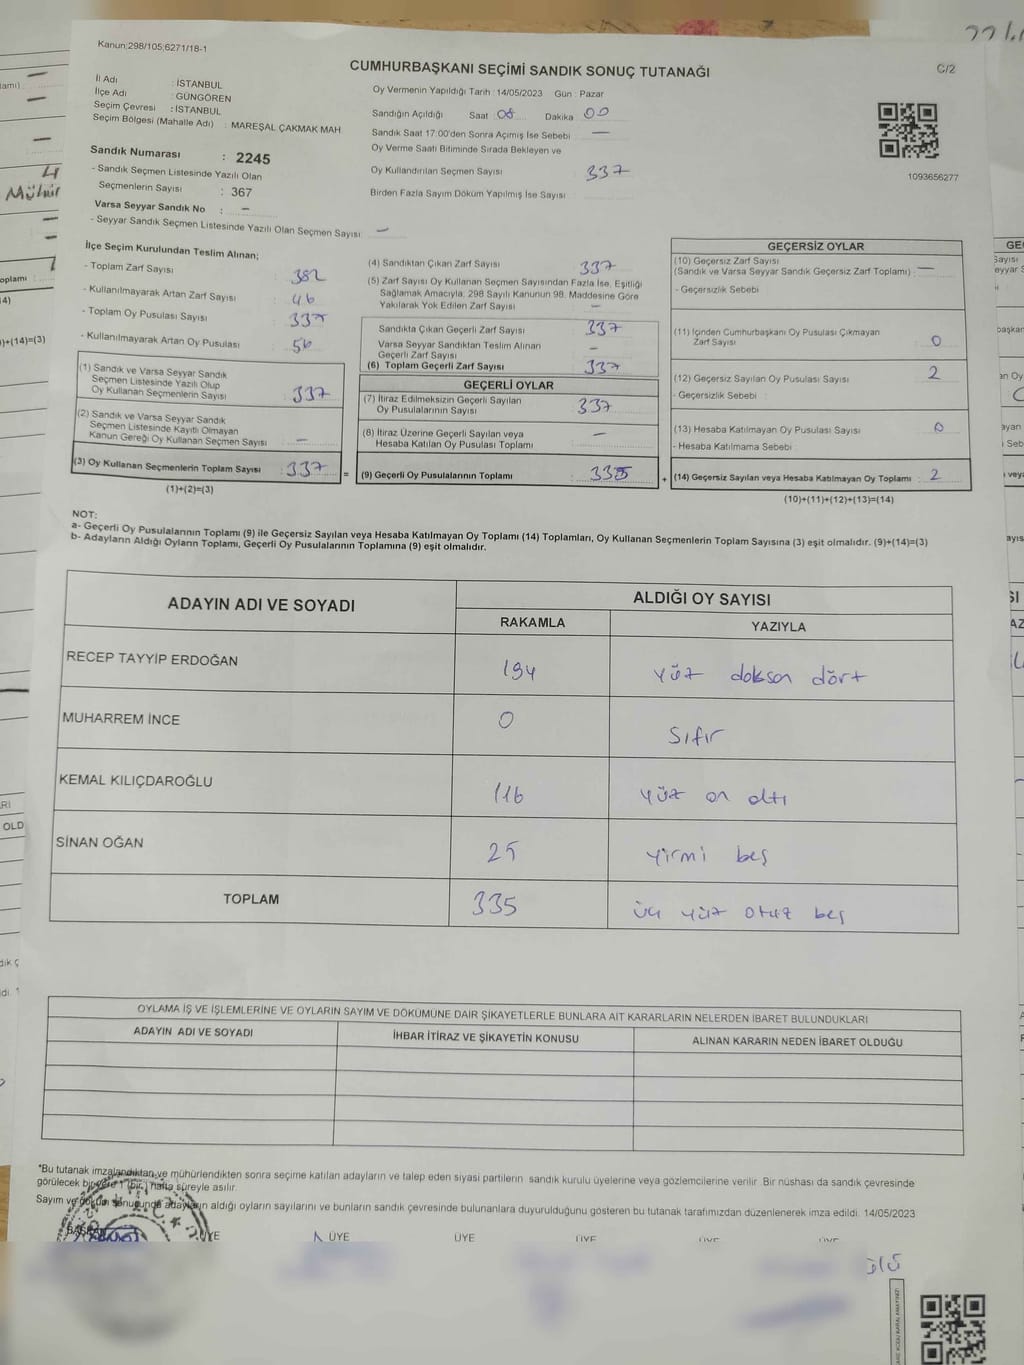 Kanun:298/105;6271/18-1
CUMHURBAŞKANI SEÇİMİ SANDIK SONUÇ TUTANAĞI
C/2
İl Adı : İSTANBUL
İlçe Adı : GÜNGÖREN
Seçim Çevresi : İSTANBUL
Seçim Bölgesi (Mahalle Adı) : MAREŞAL ÇAKMAK MAH
Sandık Numarası : 2245
- Sandık Seçmen Listesinde Yazılı Olan
Seçmenlerin Sayısı : 367
Varsa Seyyar Sandık No : -
- Seyyar Sandık Seçmen Listesinde Yazılı Olan Seçmen Sayısı : -
Oy Vermenin Yapıldığı Tarih : 14/05/2023 Gün : Pazar
Sandığın Açıldığı Saat : 08 Dakika : 00
Sandık Saat 17:00'den Sonra Açımış İse Sebebi : —
Oy Verme Saati Bitiminde Sırada Bekleyen ve
Oy Kullandırılan Seçmen Sayısı : 337
Birden Fazla Sayım Döküm Yapılmış İse Sayısı :
1093656277
İlçe Seçim Kurulundan Teslim Alınan;
- Toplam Zarf Sayısı : 382
- Kullanılmayarak Artan Zarf Sayısı : 46
- Toplam Oy Pusulası Sayısı : 337
- Kullanılmayarak Artan Oy Pusulası : 56
(1) Sandık ve Varsa Seyyar Sandık
Seçmen Listesinde Yazılı Olup
Oy Kullanan Seçmenlerin Sayısı : 337
(2) Sandık ve Varsa Seyyar Sandık
Seçmen Listesinde Kayıtlı Olmayan
Kanun Gereği Oy Kullanan Seçmen Sayısı : -
(3) Oy Kullanan Seçmenlerin Toplam Sayısı : 337 =
(1)+(2)=(3)
(4) Sandıktan Çıkan Zarf Sayısı : 337
(5) Zarf Sayısı Oy Kullanan Seçmen Sayısından Fazla İse, Eşitliği
Sağlamak Amacıyla, 298 Sayılı Kanunun 98. Maddesine Göre
Yakılarak Yok Edilen Zarf Sayısı : -
Sandıkta Çıkan Geçerli Zarf Sayısı : 337
Varsa Seyyar Sandıktan Teslim Alınan
Geçerli Zarf Sayısı : -
(6) Toplam Geçerli Zarf Sayısı : 337
GEÇERLİ OYLAR
(7) İtiraz Edilmeksizin Geçerli Sayılan
Oy Pusulalarının Sayısı : 337
(8) İtiraz Üzerine Geçerli Sayılan veya
Hesaba Katılan Oy Pusulası Toplamı : -
(9) Geçerli Oy Pusulalarının Toplamı : 335 +
GEÇERSİZ OYLAR
(10) Geçersiz Zarf Sayısı
(Sandık ve Varsa Seyyar Sandık Geçersiz Zarf Toplamı) : —
- Geçersizlik Sebebi :
(11) İçinden Cumhurbaşkanı Oy Pusulası Çıkmayan
Zarf Sayısı : 0
(12) Geçersiz Sayılan Oy Pusulası Sayısı : 2
- Geçersizlik Sebebi :
(13) Hesaba Katılmayan Oy Pusulası Sayısı : 0
- Hesaba Katılmama Sebebi :
(14) Geçersiz Sayılan veya Hesaba Katılmayan Oy Toplamı : 2
(10)+(11)+(12)+(13)=(14)
NOT:
a- Geçerli Oy Pusulalarının Toplamı (9) ile Geçersiz Sayılan veya Hesaba Katılmayan Oy Toplamı (14) Toplamları, Oy Kullanan Seçmenlerin Toplam Sayısına (3) eşit olmalıdır. (9)+(14)=(3)
b- Adayların Aldığı Oyların Toplamı, Geçerli Oy Pusulalarının Toplamına (9) eşit olmalıdır.
ADAYIN ADI VE SOYADI
ALDIĞI OY SAYISI
RAKAMLA YAZIYLA
RECEP TAYYİP ERDOĞAN 194 yüz doksan dört
MUHARREM İNCE 0 Sıfır
KEMAL KILIÇDAROĞLU 116 yüz on altı
SİNAN OĞAN 25 yirmi beş
TOPLAM 335 üç yüz otuz beş
OYLAMA İŞ VE İŞLEMLERİNE VE OYLARIN SAYIM VE DÖKÜMÜNE DAİR ŞİKAYETLERLE BUNLARA AİT KARARLARIN NELERDEN İBARET BULUNDUKLARI
ADAYIN ADI VE SOYADI İHBAR İTİRAZ VE ŞİKAYETİN KONUSU ALINAN KARARIN NEDEN İBARET OLDUĞU
*Bu tutanak imzalandıktan ve mühürlendikten sonra seçime katılan adayların ve talep eden siyasi partilerin sandık kurulu üyelerine veya gözlemcilerine verilir. Bir nüshası da sandık çevresinde
görülecek bir yere 1 (bir) hafta süreyle asılır.
Sayım ve döküm sonucunda adayların aldığı oyların sayılarını ve bunların sandık çevresinde bulunanlara duyurulduğunu gösteren bu tutanak tarafımızdan düzenlenerek imza edildi. 14/05/2023
BAŞKAN ÜYE ÜYE ÜYE ÜYE ÜYE